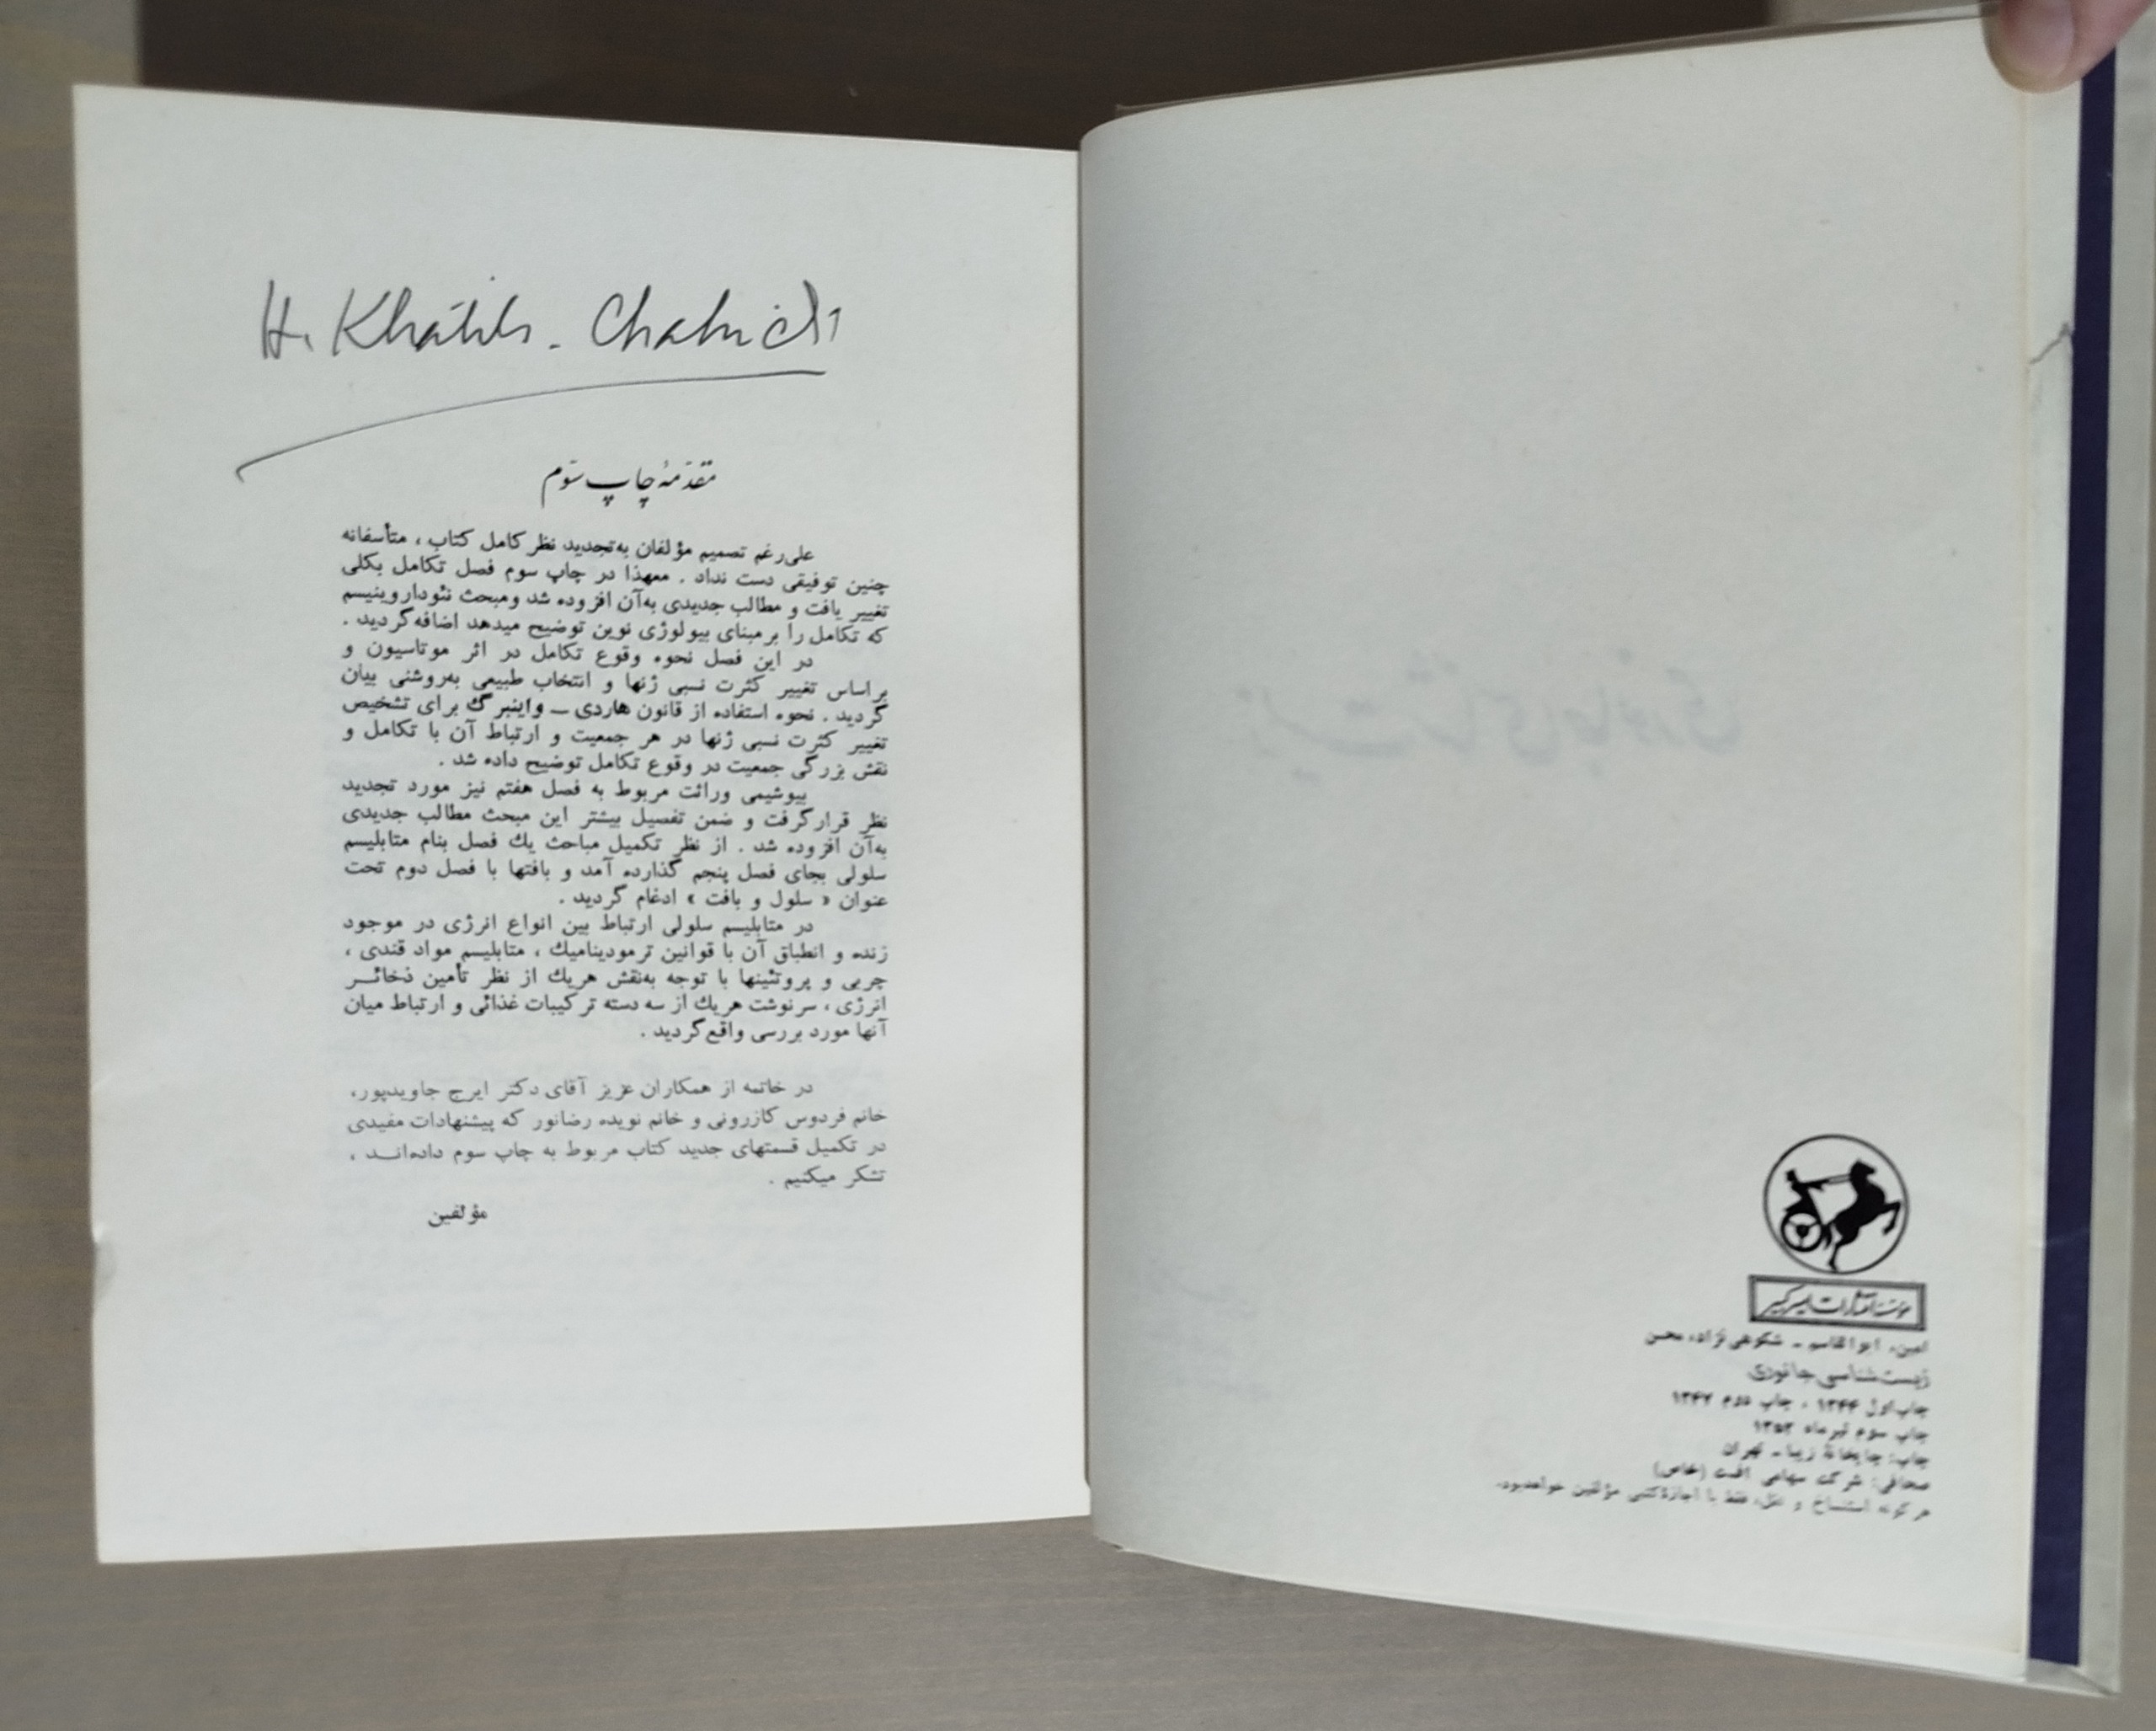 مؤسسهٔ انتشارات امیرکبیر
امین، ابوالقاسم ـ شکوهی‌نژاد، محسن
زیست‌شناسی جانوری
چاپ اول ۱۳۴۴ ، چاپ دوم ۱۳۴۷
چاپ سوم تیرماه ۱۳۵۲
چاپ: چاپخانهٔ زیبا ـ تهران
صحافی: شرکت سهامی افست (خاص)
هر گونه استنساخ و نقل، فقط با اجازهٔ کتبی مؤلفین خواهدبود.
H. Khatib - Chahidi
مقدمهٔ چاپ سوم
علی‌رغم تصمیم مؤلفان به‌تجدید نظر کامل کتاب ، متأسفانه
چنین توفیقی دست نداد . معهذا در چاپ سوم فصل تکامل بکلی
تغییر یافت و مطالب جدیدی به‌آن افزوده شد ومبحث نئوداروینیسم
که تکامل را برمبنای بیولوژی نوین توضیح میدهد اضافه‌گردید .
در این فصل نحوه وقوع تکامل در اثر موتاسیون و
براساس تغییر کثرت نسبی ژنها و انتخاب طبیعی به‌روشنی بیان
گردید . نحوه استفاده از قانون هاردی ــ واینبرگ برای تشخیص
تغییر کثرت نسبی ژنها در هر جمعیت و ارتباط آن با تکامل و
نقش بزرگی جمعیت در وقوع تکامل توضیح داده شد .
بیوشیمی وراثت مربوط به فصل هفتم نیز مورد تجدید
نظر قرارگرفت و ضمن تفصیل بیشتر این مبحث مطالب جدیدی
به‌آن افزوده شد . از نظر تکمیل مباحث یك فصل بنام متابلیسم
سلولی بجای فصل پنجم گذارده آمد و بافتها با فصل دوم تحت
عنوان « سلول و بافت » ادغام گردید .
در متابلیسم سلولی ارتباط بین انواع انرژی در موجود
زنده و انطباق آن با قوانین ترمودینامیك ، متابلیسم مواد قندی ،
چربی و پروتئینها با توجه به‌نقش هریك از نظر تأمین ذخائـر
انرژی ، سرنوشت هریك از سه دسته ترکیبات غذائی و ارتباط میان
آنها مورد بررسی واقع‌گردید .
در خاتمه از همکاران عزیز آقای دکتر ایرج جاویدپور،
خانم فردوس کازرونی و خانم نویده رضانور که پیشنهادات مفیدی
در تکمیل قسمتهای جدید کتاب مربوط به چاپ سوم داده‌انـد ،
تشکر میکنیم .
مؤلفین